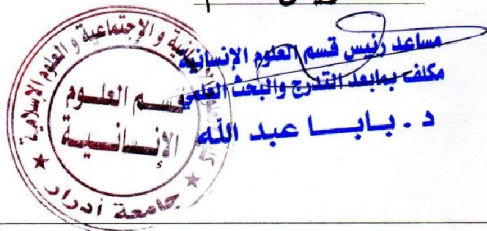 مساعد رئيس قسم العلوم الإنسانية
مكلف بمابعد التدرج والبحث العلمي
د . بابا عبد الله
الإجتماعية و العلوم الاسلامية
قسم العلوم
الإنسانية
جامعة أدرار